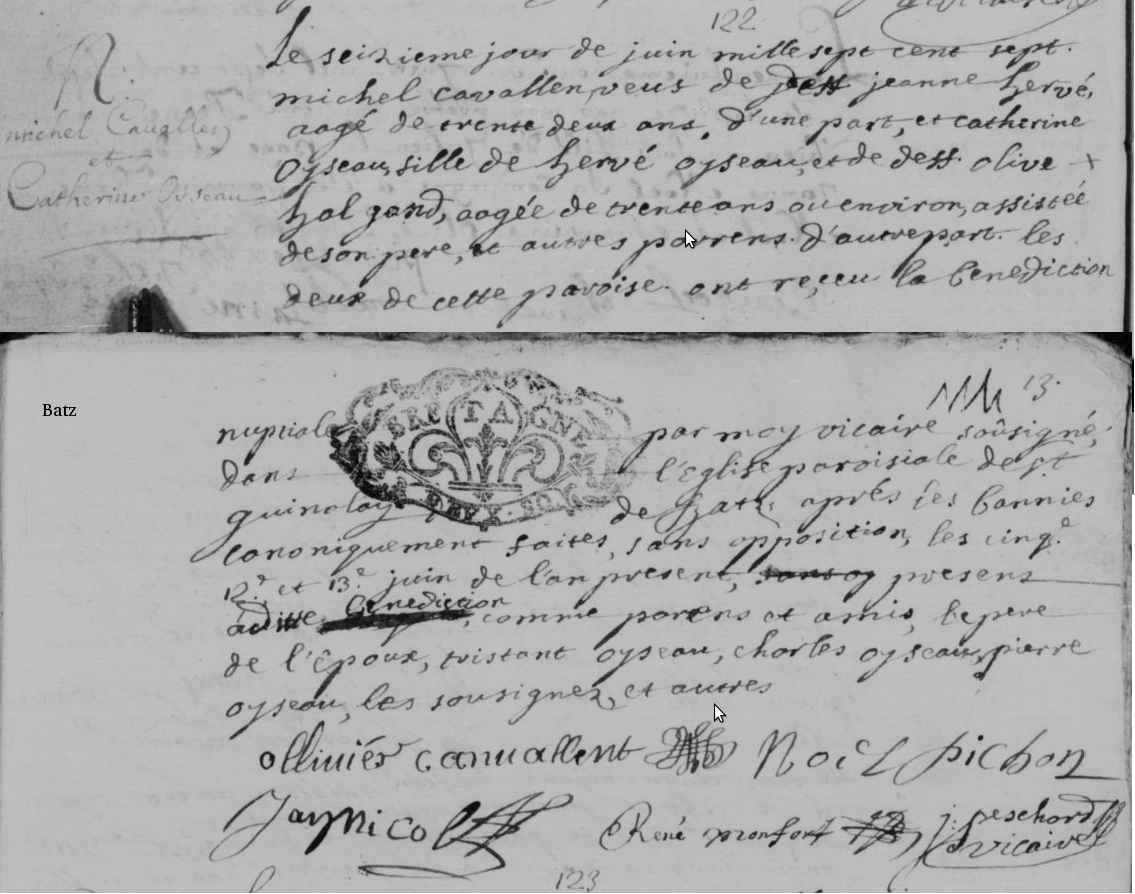 122
Le seizieme jour de juin mille sept cent sept.
michel cavallen, veuf de deff jeanne hervé,
aagé de trente deux ans, d'une part, et catherine
oyseau, fille de hervé oyseau, et de deff. olive +
halgand, aagée de trente ans ou environ, assistée
de son pere, et autres parrens. d'autre part. les
deux de cette paroise. ont reçeu la benediction
michel Cavallen
et
Catherine Oyseau
Batz
13.
BRETAGNE
DEUX SOLS
nuptiale par moy vicaire soûsigné,
dans l'eglise paroisiale de st
guinolay de Batz, aprés les bannies
canoniquement faites, sans opposition, les cinq.e
12.e et 13.e juin de l'an present, presens
aditte benediction, comme parens et amis, le pere
de l'êpoux, tristant oyseau, charles oyseau, pierre
oyseau, les sousignez, et autres
ollivier canuallent Noel pichon
Jay Nicol René monfort j. peschord
vicaire
123